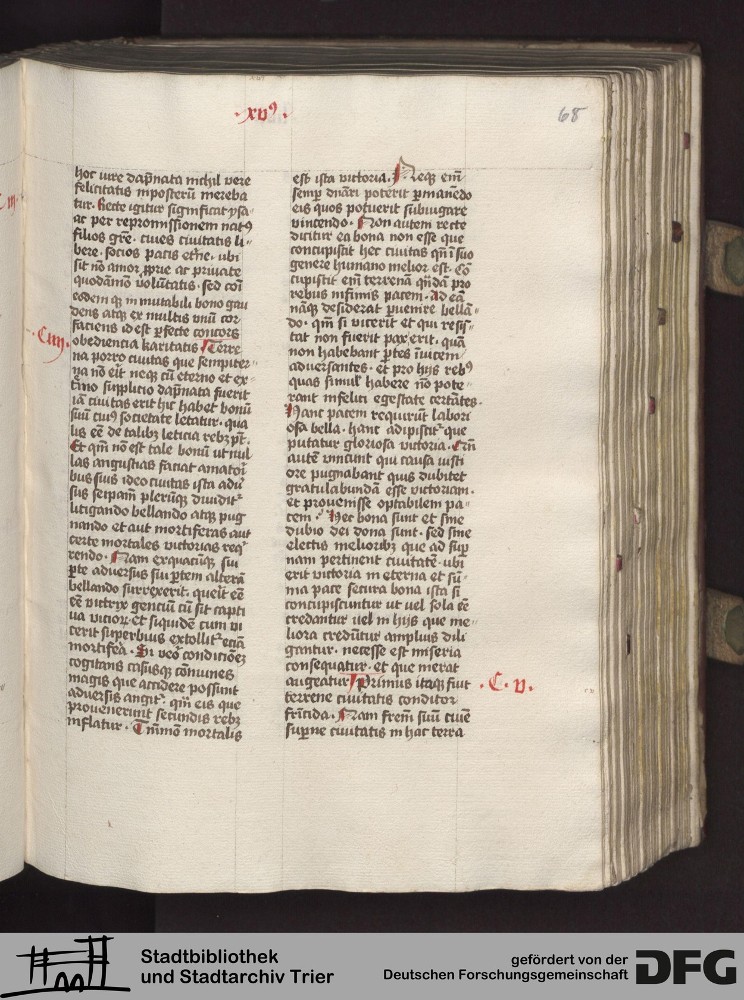 ·xvꝰ·
68
hoc iure dāpnata nichil vere
felicitatis inposterū mereba
tur. Recte igitur significat ysa-
ac per repromissionem natꝰ
filios grē. ciues ciuitatis li-
bere. socios pacis etīe. vbi
sit nō amor ꝓprie ac priuate
quodāmō volūtatis. sed cōi
eodem qꝫ inmutabili bono gau
dens atqꝫ ex multis vnū cor
faciens id est ꝑfecte concors
·C iiij·
obediencia karitatis Terre
na porro ciuitas que sempiter-
na nō erit neqꝫ cū eterno et ex-
tīno supplicio dāpnata fuerit
iā ciuitas erit hic habet bonū
suū cuiꝰ societate letatur. qua
lis eē de talibꝫ leticia rebꝫ pt̄.
Et qm̄ nō est tale bonū ut nul
las angustias faciat amatoī
bus suis ideo ciuitas ista adū
sus seipam̄ plerūqꝫ diuiditᷣ
litigando bellando atqꝫ pug
nando et aut mortiferas aut
certe mortales victorias reqᷣ
rendo. Nam exquacūqꝫ sui
ꝑte aduersus sui ꝑtem alterā
bellando surrexerit. querit eē
eē victrix genciū cū sit capti
ua vicioꝝ et siquidē cum vi
cerit superbius extollitᷣ eciā
mortifēa. Si veō condicōeꝫ
cogitans casusqꝫ cōmunes
magis que accidere possunt
aduersis angitᷣ. qm̄ eis que
prouenerunt secundis rebꝫ
inflatur. Tmmō mortalis
est ista victoria. Neqꝫ em̄
semꝑ dn̄ari poterit ꝑmanēdo
eis quos potuerit subiugare
vincendo. Non autem recte
dicitur ea bona non esse que
concupiscit hec ciuitas qn̄ ī suo
genere humano melior est. Cō
cupiscit em̄ terrenā qn̄dā pro
rebus infimis pacem. Ad eā
nāqꝫ desiderat ꝑuenire bellā-
do. qm̄ si vicerit et qui resis-
tat non fuerit pax erit. quā
non habebant ꝑtes īuicem
aduersantes. et pro hijs rebꝰ
quas simul habere nō pote-
rant infelici egestate certātes.
Hanc pacem requirūt labori
osa bella. hanc adipiscitᷣ que
putatur gloriosa victoria. Cn̄
autē vincunt qui causa iusti
ore pugnabant quis dubitet
gratulabundā esse victoriam.
et prouenisse optabilem pa-
cem. Hec bona sunt et sine
dubio dei dona sunt. sed sine
electis melioribꝫ que ad suꝑ
nam pertinent ciuitatē. vbi
erit victoria in eterna et sū-
ma pace secura bona ista si
concupiscuntur ut uel sola eē
credantur uel in hijs que me-
liora credūtur amplius dili
guntur. necesse est miseria
consequatur. et que merat
augeatur Primus itaqꝫ fuit
·C· v·
terrene ciuitatis conditor
fr̄icida. Nam frem̄ suū ciuē
suꝑne ciuitatis in hac terra
Stadtbibliothek
und Stadtarchiv Trier
gefördert von der
Deutschen Forschungsgemeinschaft
DFG